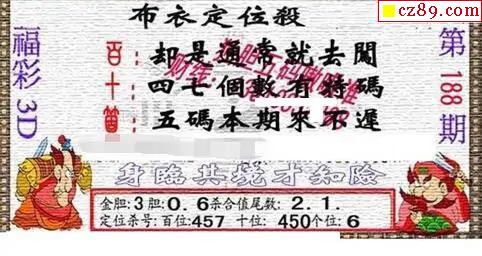 cz89.com
布衣定位殺
福彩3D
第188期
百十個:
却是通常就去闖
四七個數有特碼
五碼本期來不遲
身臨其境才知險
金胆:3胆:0.6杀合值尾数:2.1.
定位杀号:百位:457 十位:450个位:6